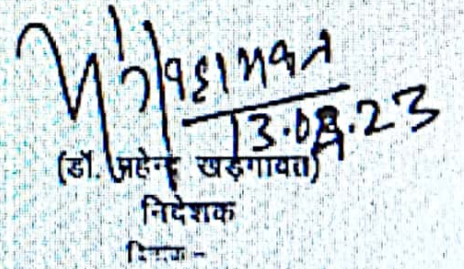 13.08.23
(डॉ. महेन्द्र खड़गावत)
निदेशक
दिनांक -